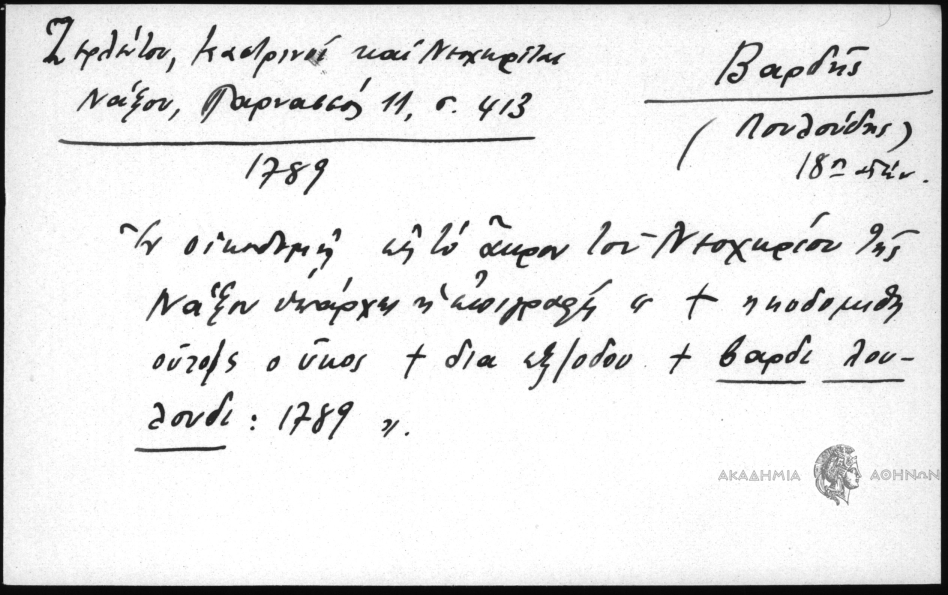 Ζερλέντου, Καστρινοί καί Νεοχωρῖται
Νάξου, Παρνασσός 11, σ. 413
1789
Βαρδής
(Λουλούδης)
18ης
Ἐν οἰκοδομῇ εἰς τό ἄκρον τοῦ Νεοχωρίου τῆς
Νάξου ὑπάρχει ἡ ἐπιγραφή « + ηκοδομιθη
ούτος ο ύκος + δια εξόδου + βαρδι λου-
λουδι : 1789 ».
ΑΚΑΔΗΜΙΑ ΑΘΗΝΩΝ